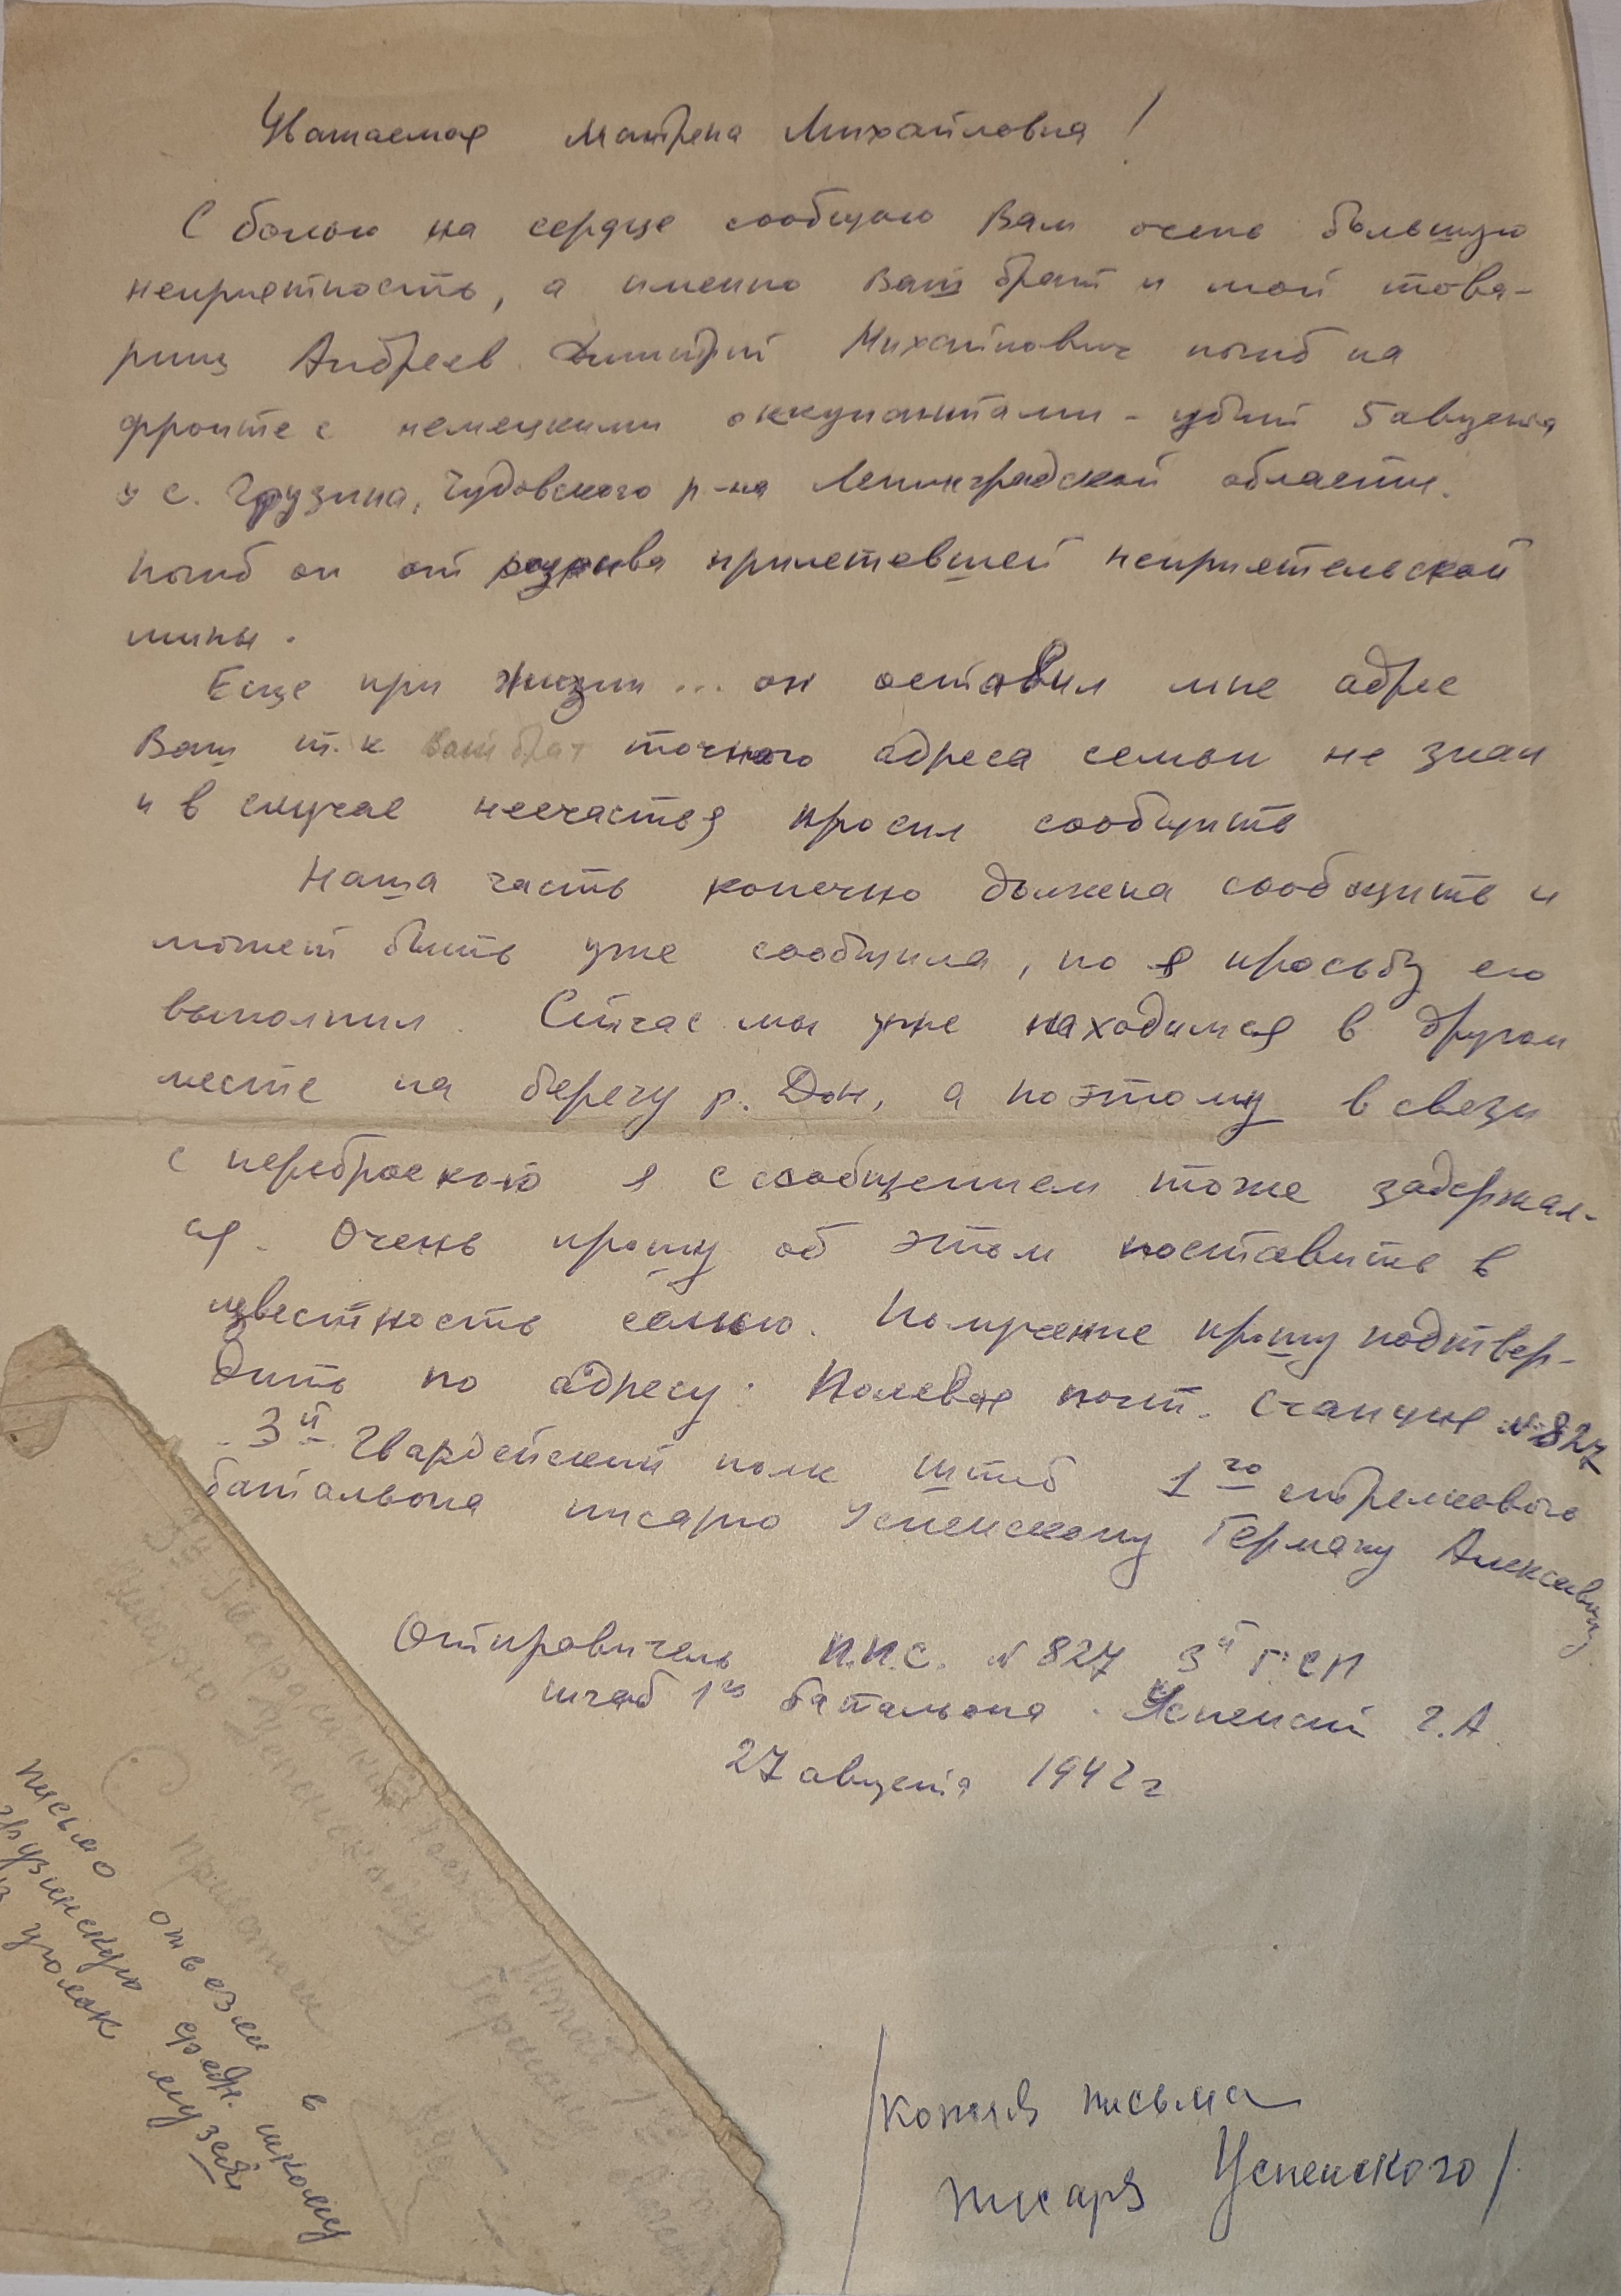 Уважаемая Матрена Михайловна!
С болью на сердце сообщаю Вам очень большую
неприятность, а именно Ваш брат и мой това-
рищ Андреев Дмитрий Михайлович погиб на
фронте с немецкими оккупантами - убит 5 августа
у с. Грузина, Чудовского р-на Ленинградской области.
Погиб он от разрыва прилетевшей неприятельской
мины.
Еще при жизни... он оставил мне адрес
Ваш т.к ваш брат точного адреса семьи не знал
и в случае несчастья просил сообщить
Наша часть конечно должна сообщить и
может быть уже сообщила, но я просьбу его
выполнил. Сейчас мы уже находимся в другом
месте на берегу р. Дон, а поэтому в связи
с переброскою я с сообщением тоже задержал-
ся. Очень прошу об этом поставить в
известность семью. Получение прошу подтвер-
дить по адресу: Полевая почт. станция №827
3й Гвардейский полк штаб 1го стрелкового
батальона писарю Успенскому Герману Алексеевичу
Отправитель П.П.С. №827 3й ГСП
штаб 1го батальона. Успенский Г.А
27 августа 1942 г
/копия письма
писаря Успенского/
3й Гвардейский штаб 1го
писарю Успенскому Герману
письмо отвезли в
грузинскую средн. школу
уголок музей